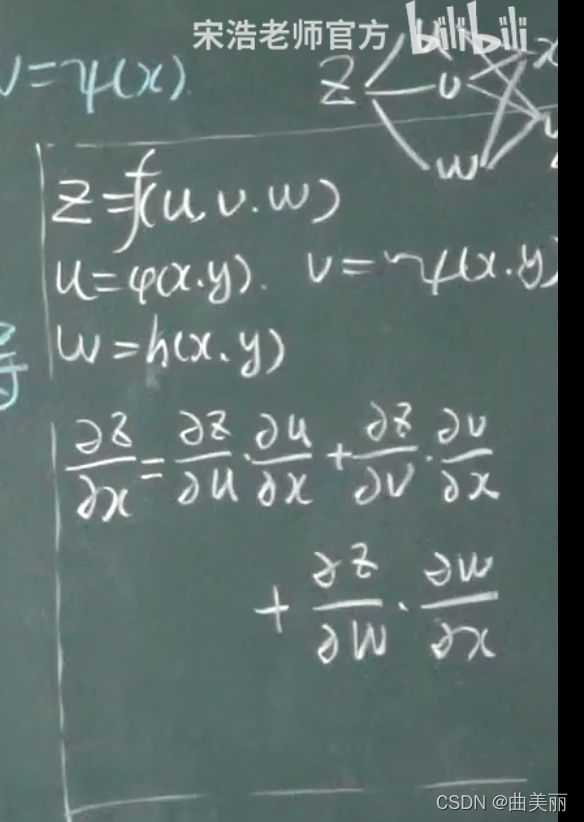 宋浩老师官方 bilibili
v=ψ(x)
z u x
v y
w
z=f(u,v.w)
u=φ(x.y). v=ψ(x.y)
w=h(x.y)
∂z/∂x=∂z/∂u·∂u/∂x+∂z/∂v·∂v/∂x
+∂z/∂w·∂w/∂x
CSDN @曲美丽